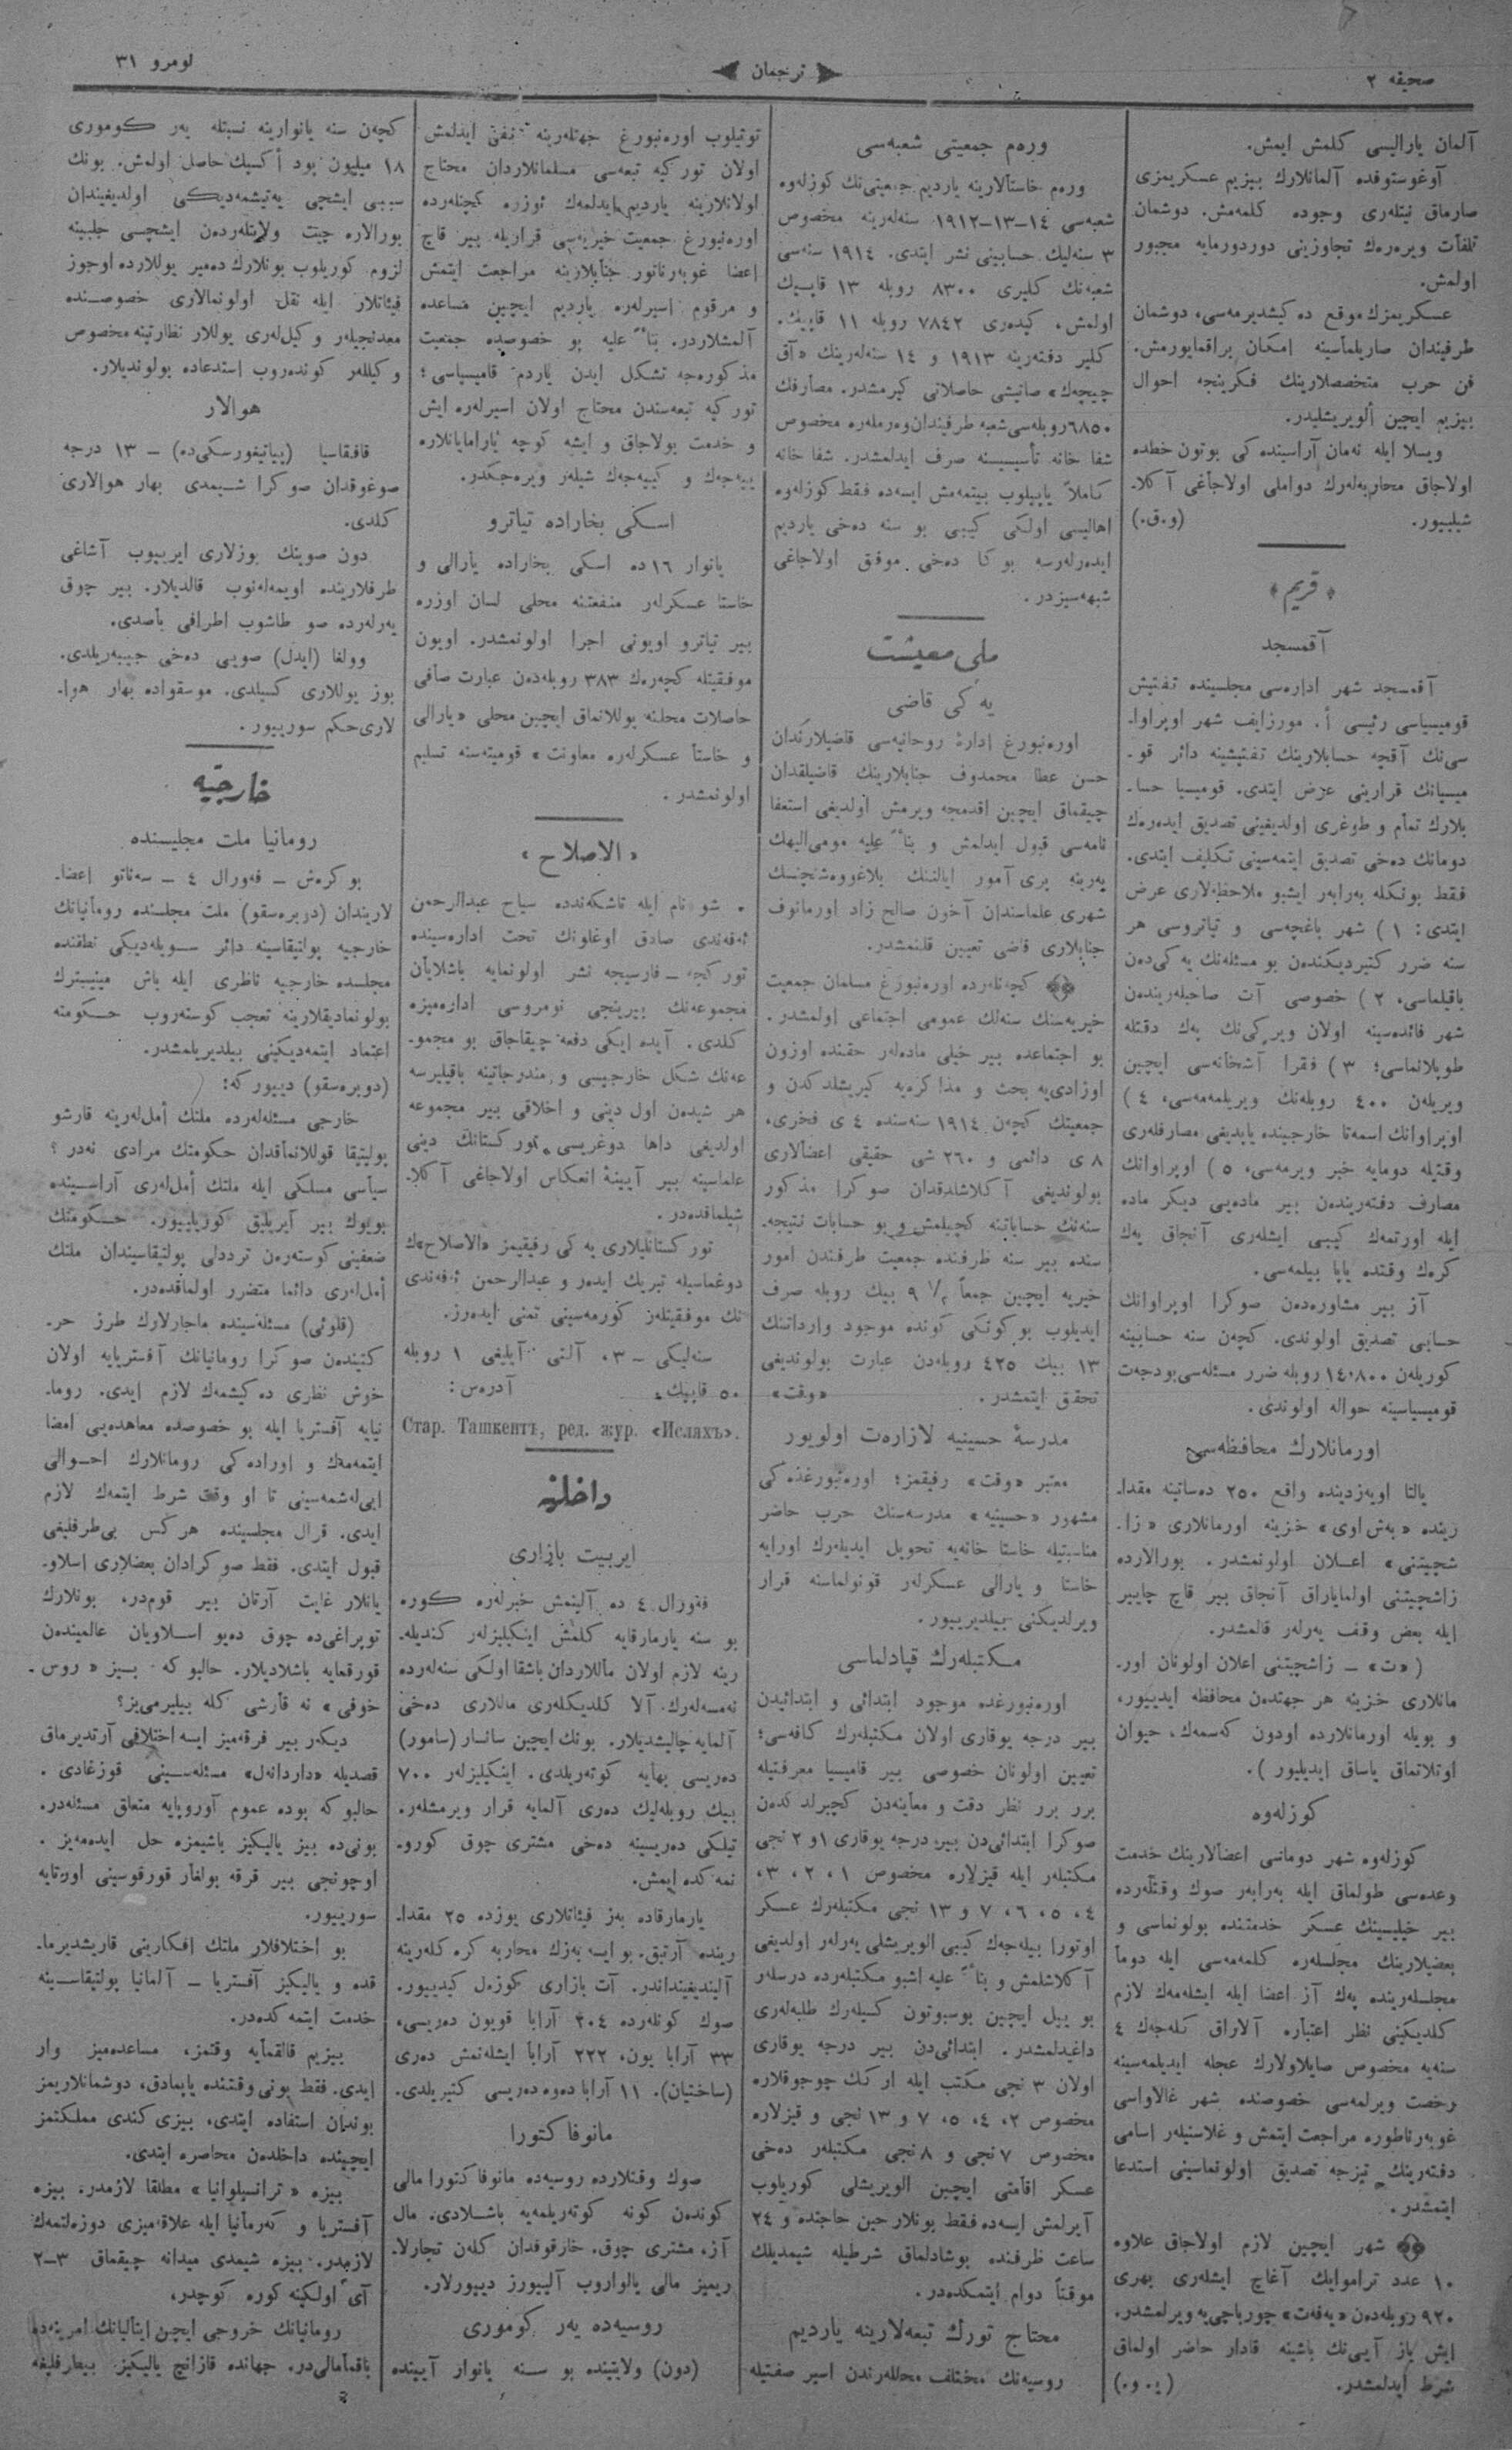 صحیفه ٢
ترجمان
نومرو ٣١
آلمان یارالیسی کلمش ایمش.
آوغوستوفده آلمانلارك بیزیم عسکریمزی
صارماق نیتلەری وجوده کلمەمش. دوشمان
تلفأت ویرەرەك تجاوزینی دوردورمایه مجبور
اولمش.
عسکریمزك موقع دەکیشدیرمەسی، دوشمان
طرفیندان صاریلمأسینه امکان براقمایورمش.
فن حرب متخصصلارینك فکرینجه احوال
بیزیم ایچین ألویریشلیدر.
ویسلا ایله نەمان آراسیندەکی بوتون خطده
اولاجاق محاربەلەرك دواملی اولاجاغی آکلا-
شیلییور. (و.ق.)
«قریم»
آقمسجد
آقمسجد شهر ادارەسی مجلسینده تفتیش
قومیسیاسی رئیسی أ. مورزایف شهر اوپراوا-
سینك آقچه حسابلارینك تفتیشینه دائر قو-
میسیانك قرارینی عرض ایتدی. قومیسیا حسا-
بلارك تمأم و طوغری اولدیغینی تصدیق ایدەرەك
دومانك دەخی تصدیق ایتمەسینی تکلیف ایتدی.
فقط بونكله بەرابەر ایشبو ملاحظەلاری عرض
ایتدی: ١) شهر باغچەسی و تیاتروسی هر
سنه ضرر کتیردیکندەن بو مسئلەنك یەکیدەن
باقیلماسی، ٢) خصوصی آت صاحبلەریندەن
شهر فائدەسینه اولان ویرکینك یەك دقتله
طوپلانماسی؛ ٣) فقرا آشخانەسی ایچین
ویریلەن ٤٠٠ روبلەنك ویریلمەمەسی، ٤)
اوپراوانك اسمەتا خارجینده یاپدیغی مصارفلەری
وقتیله دومایه خبر ویرمەسی، ٥) اوپراوانك
مصارف دفتەریندەن بیر مادەیی دیکر ماده
ایله اورتمەك کیبی ایشلەری آنجاق یەك
کرەك وقتده یاپا بیلمەسی.
آز بیر مشاورەدەن صوکرا اوپراوانك
حسابی تصدیق اولوندی. کچەن سنه حسابینه
کوریلەن ١٤٠٨٠٠ روبله ضرر مسئلەسی بودجەت
قومیسیاسینه حواله اولوندی.
اورمانلارك محافظەسی
یالتا اویەزدینده واقع ٢٥٠ دەساتینه مقدا-
رینده «بەش اوی» خزینه اورمانلاری «زا-
شچیتنی» اعلان اولونمشدر. بورالارده
زاشچیتنی اولمایاراق آنجاق بیر قاچ چایبر
ایله بعض وقف یەرلەر قالمشدر.
(«ت» – زاشچیتنی اعلان اولونان اور-
مانلاری خزینه هر جهتدەن محافظه ایدییور،
و بویله اورمانلارده اودون کەسمەك، حیوان
اوتلاتماق یاساق ایدیلیور).
کوزلەوه
کوزلەوه شهر دوماسی اعضألارینك خدمت
وعدەسی طولماق ایله بەرابەر صوك وقتلەرده
بیر خیلیسینك عسکر خدمتنده بولونماسی و
بعضیلارینك مجلسلەره کلمەمەسی ایله دومأ
مجلسلەرینده یەك آز اعضا ایله ایشلەمەك لازم
کلدیکینی نظر اعتبأره آلاراق کلەجەك ٤
سنەیه مخصوص صایلاولارك عجله ایدیلمەسینه
رخصت ویرلمەسی خصوصنده شهر غالاواسی
غوبەرناطوره مراجعت ایتمش و غلاسنیلەر اسامی
دفتەرینك تیزجه تصدیق اولونماسینی استدعا
ایتمشدر.
شهر ایچین لازم اولاجاق علاوه
١٠ عدد تراموایك آغاچ ایشلەری بهری
٩٢٠ روبلەدەن «یەفەت» چورباجییه ویرلمشدر.
ایش یاز آیینك باشینه قادار حاضر اولماق
شرط ایدلمشدر. (ی.و.)
ورەم جمعیتی شعبەسی
ورەم خاستألارینه یاردیم جمعیتینك کوزلەوه
شعبەسی ١٤–١٣–١٩١٢ سنەلەرینه مخصوص
٣ سنەلیك حسابینی نشر ایتدی. ١٩١٤ سنەسی
شعبەنك کلیری ٨٣٠٠ روبله ١٣ قاپیك
اولمش، کیدەری ٧٨٤٢ روبله ١١ قاپیك.
کلیر دفتەرینه ١٩١٣ و ١٤ سنەلەرینك «آق
چیچەك» صاتیشی حاصلاتی کیرمشدر. مصأرفك
٦٨٥٠ روبلەسی شعبه طرفیندان ورەملەره مخصوص
شفا خانه تأسیسینه صرف ایدلمشدر. شفا خانه
کاملاً یاپیلوب بیتمەمش ایسەده فقط کوزلەوه
اهالیسی اولکی کیبی بو سنه دەخی یاردیم
ایدەرلەرسه بوکا دەخی موفق اولاجاغی
شبهەسیزدر.
ملی معیشت
یەکی قاضی
اورەنبورغ ادارۀ روحانیەسی قاضیلارندان
حسن عطا محمدوف جنابلارینك قاضیلقدان
چیقماق ایچین اقدمجه ویرمش اولدیغی استعفا
نامەسی قبول ایدلمش و بنأً علیه مومی‌الیهك
یەرینه یری آمور ایالتنك بلاغووەشچنسك
شهری علماسندان آخون صالح زاد اورمانوف
جنابلاری قاضی تعیین قلنمشدر.
کچەنلەرده اورەنبورغ مسلمان جمعیت
خیریەسنك سنەلك عمومی اجتماعی اولمشدر.
بو اجتماعده بیر خیلی مادەلەر حقنده اوزون
اوزادییه بحث و مذاکرەیه کیریشلدکدن و
جمعیتك کچەن ١٩١٤ سنەسنده ٤ی فخری،
٨ی دائمی و ٢٦٠شی حقیقی اعضألاری
بولوندیغی آکلاشلدقدان صوکرا مذکور
سنەنك حساباتینه کچیلمش و بو حسابات نتیجه-
سنده بیر سنه ظرفنده جمعیت طرفندن امور
خیریه ایچین جمعاً ٩ ½ بیك روبله صرف
ایدیلوب بو کونکی کونده موجود وارداتنك
١٣ بیك ٤٢٥ روبلەدن عبارت بولوندیغی
تحقق ایتمشدر. «وقت»
مدرسۀ حسینیه لازارەت اولویور
معتبر «وقت» رفیقمز؛ اورەنبورغدەکی
مشهور «حسینیه» مدرسەسنك حرب حاضر
مناسبتیله خاستا خانەیه تحویل ایدیلەرك اورایه
خاستا و یارالی عسکرلەر قونولماسنه قرار
ویرلدیکنی بیلدیرییور.
مکتبلەرك قپادلماسی
اورەنبورغده موجود ابتدائی و ابتدائیدن
بیر درجه یوقاری اولان مکتبلەرك کافەسی؛
تعیین اولونان خصوصی بیر قامیسیا معرفتیله
برر برر نظر دقت و معاینەدن کچیرلدکدەن
صوکرا ابتدائیدن بیر درجه یوقاری ١ و ٢ نجی
مکتبلەر ایله قیزلاره مخصوص ١، ٢، ٣،
٤، ٥، ٦، ٧ و ١٣ نجی مکتبلەرك عسکر
اوتورا بیلەجەك کیبی الویریشلی یەرلەر اولدیغی
آکلاشلمش و بنأً علیه اشبو مکتبلەرده درسلەر
بو ییل ایچین بوسبوتون کسیلەرك طلبەلەری
داغیدلمشدر. ابتدائیدن بیر درجه یوقاری
اولان ٣ نجی مکتب ایله ارکك چوجوقلاره
مخصوص ٢، ٤، ٥، ٧ و ١٣ نجی و قیزلاره
مخصوص ٧ نجی و ٨ نجی مکتبلەر دەخی
عسکر اقأمتی ایچین الویریشلی کوریلوب
آیرلمش ایسەده فقط بونلار حین حاجتده و ٢٤
ساعت ظرفنده بوشادلماق شرطیله شیمدیلك
موقتاً دوام ایتمکدەدر.
محتاج تورك تبعەلارینه یاردیم
روسیەنك مختلف محللەرندن اسیر صفتیله
توتیلوب اورەنبورغ جهتلەرینه نفی ایدلمش
اولان تورکیه تبعەسی مسلمانلاردان محتاج
اولانلارینه یاردیم ایدلمەك اوزره کچنلەرده
اورەنبورغ جمعیت خیریەسی قراریله بیر قاچ
اعضا غوبەرناتور جنابلارینه مراجعت ایتمش
و مرقوم اسیرلەره یاردیم ایچین مساعده
آلمشلاردر. بنأً علیه بو خصوصده جمعیت
مذکورەجه تشکل ایدن یاردم قامیسیاسی؛
تورکیه تبعەسندن محتاج اولان اسیرلەره ایش
و خدمت بولاجاق و ایشه کوچه یارامایانلاره
ییەجەك و کییەجەك شیلەر ویرەجکدر.
اسکی بخاراده تیاترو
یانوار ١٦ده اسکی بخاراده یارالی و
خاستا عسکرلەر منفعتنه محلی لسان اوزره
بیر تیاترو اویونی اجرا اولونمشدر. اویون
موفقیتله کچەرەك ٣٨٣ روبلەدەن عبارت صأفی
حاصلات محلنه یوللانماق ایچین محلی «یارالی
و خاستأ عسکرلەره معاونت» قومیتەسنه تسلیم
اولونمشدر.
«الاصلاح»
شو نام ایله تاشکەندده سیاح عبدالرحمن
ئەفەندی صادق اوغلونك تحت ادارەسینده
تورکچه – فارسیجه نشر اولونمایه باشلایأن
مجموعەنك بیرینجی نومروسی ادارەمیزه
کلدی. آیده ایکی دفعه چیقاجاق بو مجمو-
عەنك شکل خارجیسی و مندرجاتینه باقیلیرسه
هر شیدەن اول دینی و اخلاقی بیر مجموعه
اولدیغی داها دوغریسی تورکستانك دینی
علماسینه بیر آیینۀ انعکاس اولاجاغی آکلا-
شیلماقدەدر.
تورکستانلیلاری یەکی رفیقیمز «الاصلاح»ك
دوغماسیله تبریك ایدەر و عبدالرحمن ئەفەندی
نك موفقیتلەر کورمەسینی تمنی ایدەرز.
سنەلیکی – ٣، آلتی آیلیغی ١ روبله
٥٠ قاپیك، آدرەس:
Стар. Ташкентъ, ред. жур. «Ислахъ».
داخلیه
ایربیت بازاری
فەورال ٤ ده آلینمش خبرلەره کوره
بو سنه یارمارقایه کلمش اینکیلیزلەر کندیله-
رینه لازم اولان مأللاردان باشقا اولکی سنەلەرده
نەمسەلەرك آلا کلدیکلەری ماللاری دەخی
آلمایه چالیشدیلار. بونك ایچین سانسار (سامور)
دەریسی بهایه کوتەریلدی. اینکیلیزلەر ٧٠٠
بیك روبلەلیك دەری آلمایه قرار ویرمشلەر.
تیلکی دەریسینه دەخی مشتری چوق کورو-
نمەکدە ایمش.
یارمارقاده بەز فیئاتلاری یوزده ٢٥ مقدا-
رینده آرتیق. بو ایسه بەزك محاربه کرەکلەرینه
آلیندیغینداندر. آت بازاری کوزەل کیدییور.
صوك کونلەرده ٢٠٤ آرابا قویون دەریسی،
٣٣ آرابا یون، ٢٢٢ آرابأ ایشلەنمش دەری
(ساختیان). ١١ آرابا دەوه دەریسی کتیریلدی.
مانوفاکتورا
صوك وقتلارده روسیەده مانوفاکتورا مالی
کوندەن کونه کوتەریلمەیه باشلادی. مال
آز، مشتری چوق. خارقوفدان کلەن تجارلا-
ریمیز مالی یالواروب آلییورز دییورلار.
روسیەده یەر کوموری
(دون) ولایتینده بو سنه یانوار آیینده
کچەن سنه یانوارینه نسبتله یەر کوموری
١٨ میلیون پود أکسیك حاصل اولمش. بونك
سببی ایشچی یەتیشمەدیکی اولدیغیندان
بورالاره چیت ولایتلەردەن ایشچی جلبینه
لزوم کوریلوب بونلارك دەمیر یوللارده اوجوز
فیئاتلار ایله نقل اولونمالاری خصوصنده
معدنجیلەر وکیللەری یوللار نظارتینه مخصوص
وکیللەر کوندەروب استدعاده بولوندیلار.
هوالار
قافقاسیا (پیاتیغورسکیده) – ١٣ درجه
صوغوقدان صوکرا شیمدی بهار هوالاری
کلدی.
دون صویینك بوزلاری ایریوب آشاغی
طرفلارینده اویمەلەنوب قالدیلار. بیر چوق
یەرلەرده صو طاشوب اطرافی بأصدی.
وولغا (ایدل) صویی دەخی جیبەریلدی.
بوز یوللاری کسیلدی. موسقواده بهار هوا-
لاری حکم سورییور.
خارجیه
رومانیا ملت مجلیسنده
بوکرەش – فەورال ٤ – سەناتو اعضا-
لاریندان (دوبرەسقو) ملت مجلسنده رومأنیانك
خارجیه پولتیقاسینه دائر سویلەدیکی نطقنده
مجلسده خارجیه ناظری ایله باش مینیسترك
بولونمادیقلارینه تعجب کوستەروب حکومته
اعتماد ایتمەدیکینی بیلدیریلمشدر.
(دوبرەسقو) دییور که:
خارجی مسئلەلەرده ملتك أملـلەرینه قارشو
پولیتیقا قوللانمأقدان حکومتك مرادی نەدر؟
سیأسی مسلکی ایله ملتك أمللەری آراسینده
بویوك بیر آیریلیق کوریلییور. حکومتك
ضعفینی کوستەرەن ترددلی پولتیقاسیندان ملتك
أمللەری دائما متضرر اولماقدەدر.
مسئلەسینده ماجارلارك طرز حر-
کتیندەن صوکرا رومانیانك آفستریایه اولان
خوش نظری دەکیشمەك لازم ایدی. روما-
نیایه آفستریا ایله بو خصوصده معاهدەیی امضا
ایتمەمەك و اورادەکی رومانلارك احوالی
ایی‌لەشمەسینی تا او وقت شرط ایتمەك لازم
ایدی. قرال مجلسینده هرکس بی‌طرفلیغی
قبول ایتدی. فقط صوکرادان بعضلاری اسلاو-
یانلار غایت آرتان بیر قومدر، بونلارك
توپراغیده چوق دەیو اسلاویان عالمیندەن
قورقمایه باشلادیلار. حالبوکه بیز «روس-
خوفی» نه قأرشی کله بیلیرمی‌یز؟
دیکەر بیر فرقەمیز ایسه اختلافی آرتدیرماق
قصدیله «داردانەل» مسئلەسینی قوزغادی.
حالبوکه بوده عموم آوروپایه متعلق مسئلەدر.
بونیده بیز یالیکیز باشیمزه حل ایدەمەیز.
اوچونجی بیر فرقه بولغار قورقوسینی اورتایه
سورییور.
بو اختلافلار ملتك افکارینی قاریشدیرما-
قده و یالیکیز آفستریا – آلمانیا پولتیقاسینه
خدمت ایتمەکدەدر.
بیزیم قالقمأیه وقتمز، مساعدەمیز وار
ایدی. فقط بونی وقتنده یاپمادق، دوشمانلاریمز
بوندان استفاده ایتدی، بیزی کندی مملکتمز
ایچینده داخلدەن محاصره ایتدی.
بیزه «ترانسیلوانیا» مطلقا لازمدر. بیزه
آفستریا و کەرمأنیا ایله علاقەمیزی دوزەلتمەك
لازمدر. بیزه شیمدی میدانه چیقماق ٣–٢
آی اولکینه کوره کوچدر،
رومانیانك خروجی ایچین ایتألیانك امرینه‌ده
باقمأمالیدر. جهانده قازانچ یالیکیز بیطرفلیغه